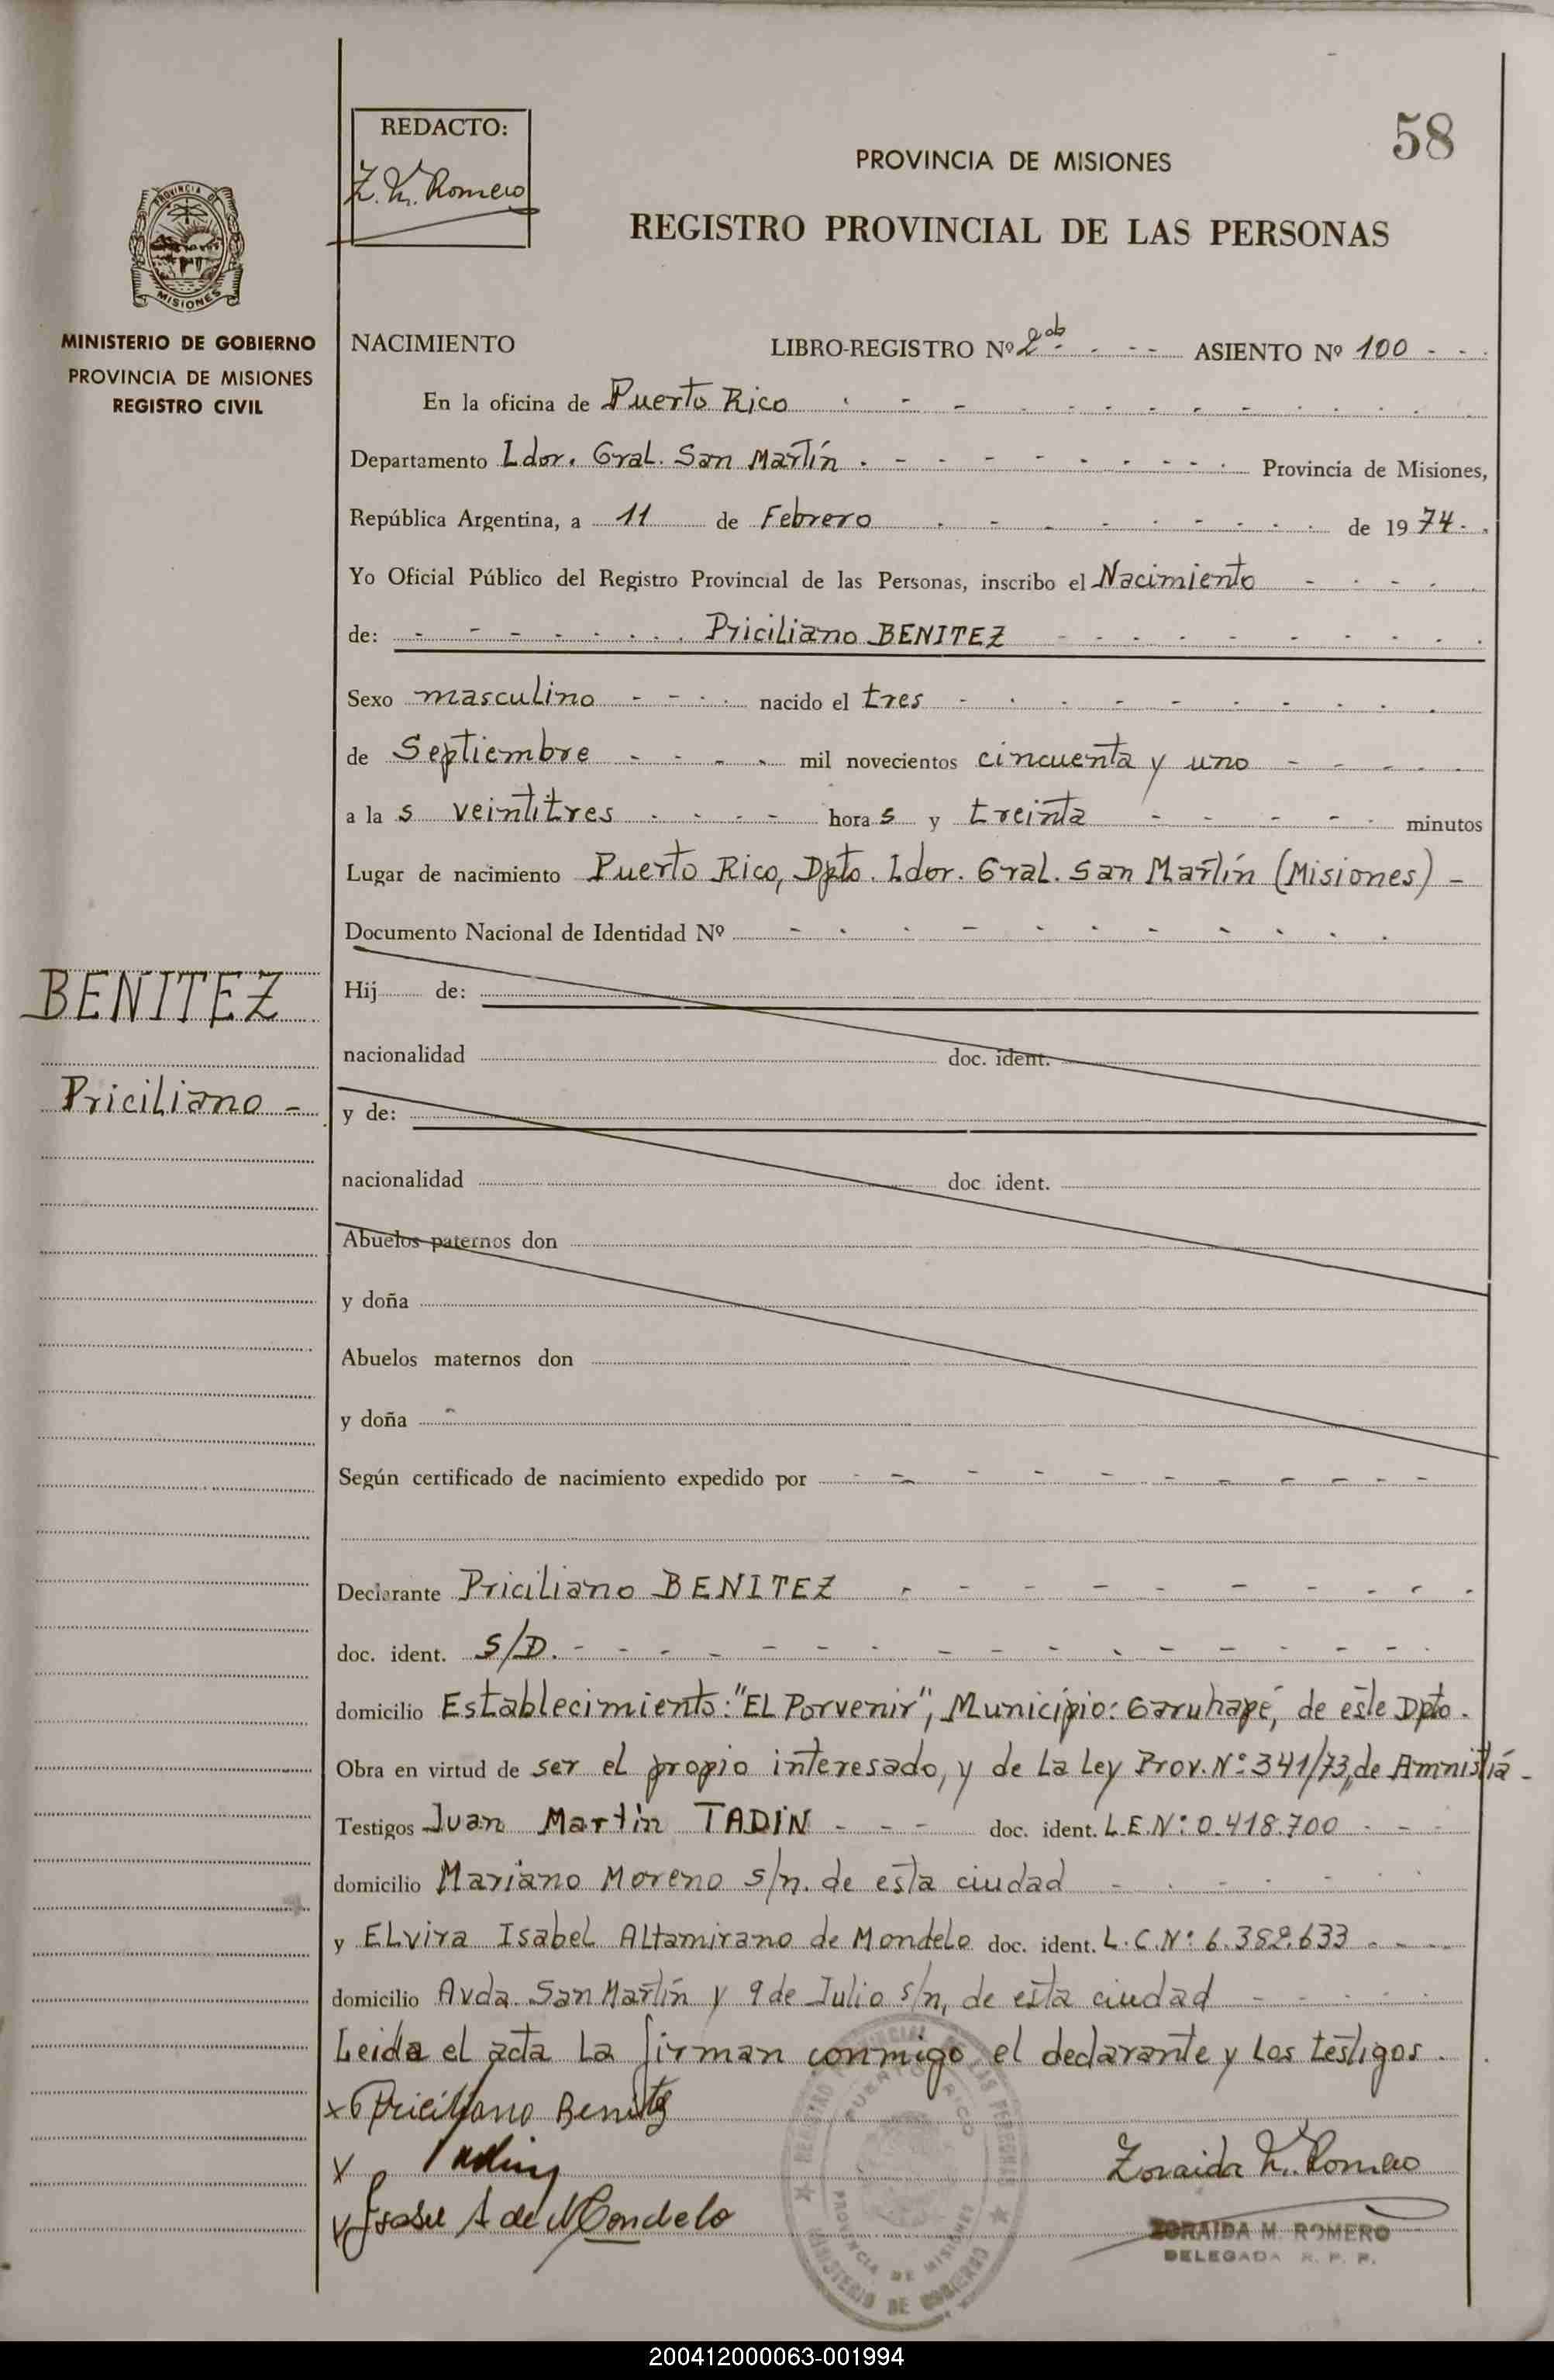 58
REDACTO:
Z. M. Romero
PROVINCIA DE MISIONES
REGISTRO PROVINCIAL DE LAS PERSONAS
PROVINCIA DE
MISIONES
MINISTERIO DE GOBIERNO
PROVINCIA DE MISIONES
REGISTRO CIVIL
NACIMIENTO LIBRO-REGISTRO Nº 2 ASIENTO Nº 100
En la oficina de Puerto Rico
Departamento Ldor. Gral. San Martín Provincia de Misiones,
República Argentina, a 11 de Febrero de 1974.
Yo Oficial Público del Registro Provincial de las Personas, inscribo el Nacimiento
de: Priciliano BENITEZ
Sexo masculino nacido el tres
de Septiembre mil novecientos cincuenta y uno
a las veintitres horas y treinta minutos
Lugar de nacimiento Puerto Rico, Dpto. Ldor. Gral. San Martín (Misiones) -
Documento Nacional de Identidad Nº
BENITEZ
Priciliano -
Hij de:
nacionalidad doc. ident.
y de:
nacionalidad doc. ident.
Abuelos paternos don
y doña
Abuelos maternos don
y doña
Según certificado de nacimiento expedido por
Declarante Priciliano BENITEZ
doc. ident. S/D.
domicilio Establecimiento: "EL Porvenir", Municipio: Garuhapé, de este Dpto.
Obra en virtud de ser el propio interesado, y de La Ley Prov. Nº: 341/73, de Amnistiá -
Testigos Juan Martin TADIN doc. ident. L.E.Nº: 0.418.700
domicilio Mariano Moreno s/n. de esta ciudad
y ELvira Isabel Altamirano de Mondelo doc. ident. L.C.Nº: 6.382.633
domicilio Avda. San Martín y 9 de Julio s/n, de esta ciudad
Leida el acta La firman conmigo el declarante y Los testigos.
x Priciliano Benitez
x Tadin
x Isabel A de Mondelo
Zoraida M. Romero
ZORAIDA M. ROMERO
DELEGADA R. P. P.
REGISTRO PROVINCIAL DE LAS PERSONAS
PUERTO RICO
PROVINCIA DE MISIONES
MINISTERIO DE GOBIERNO
200412000063-001994